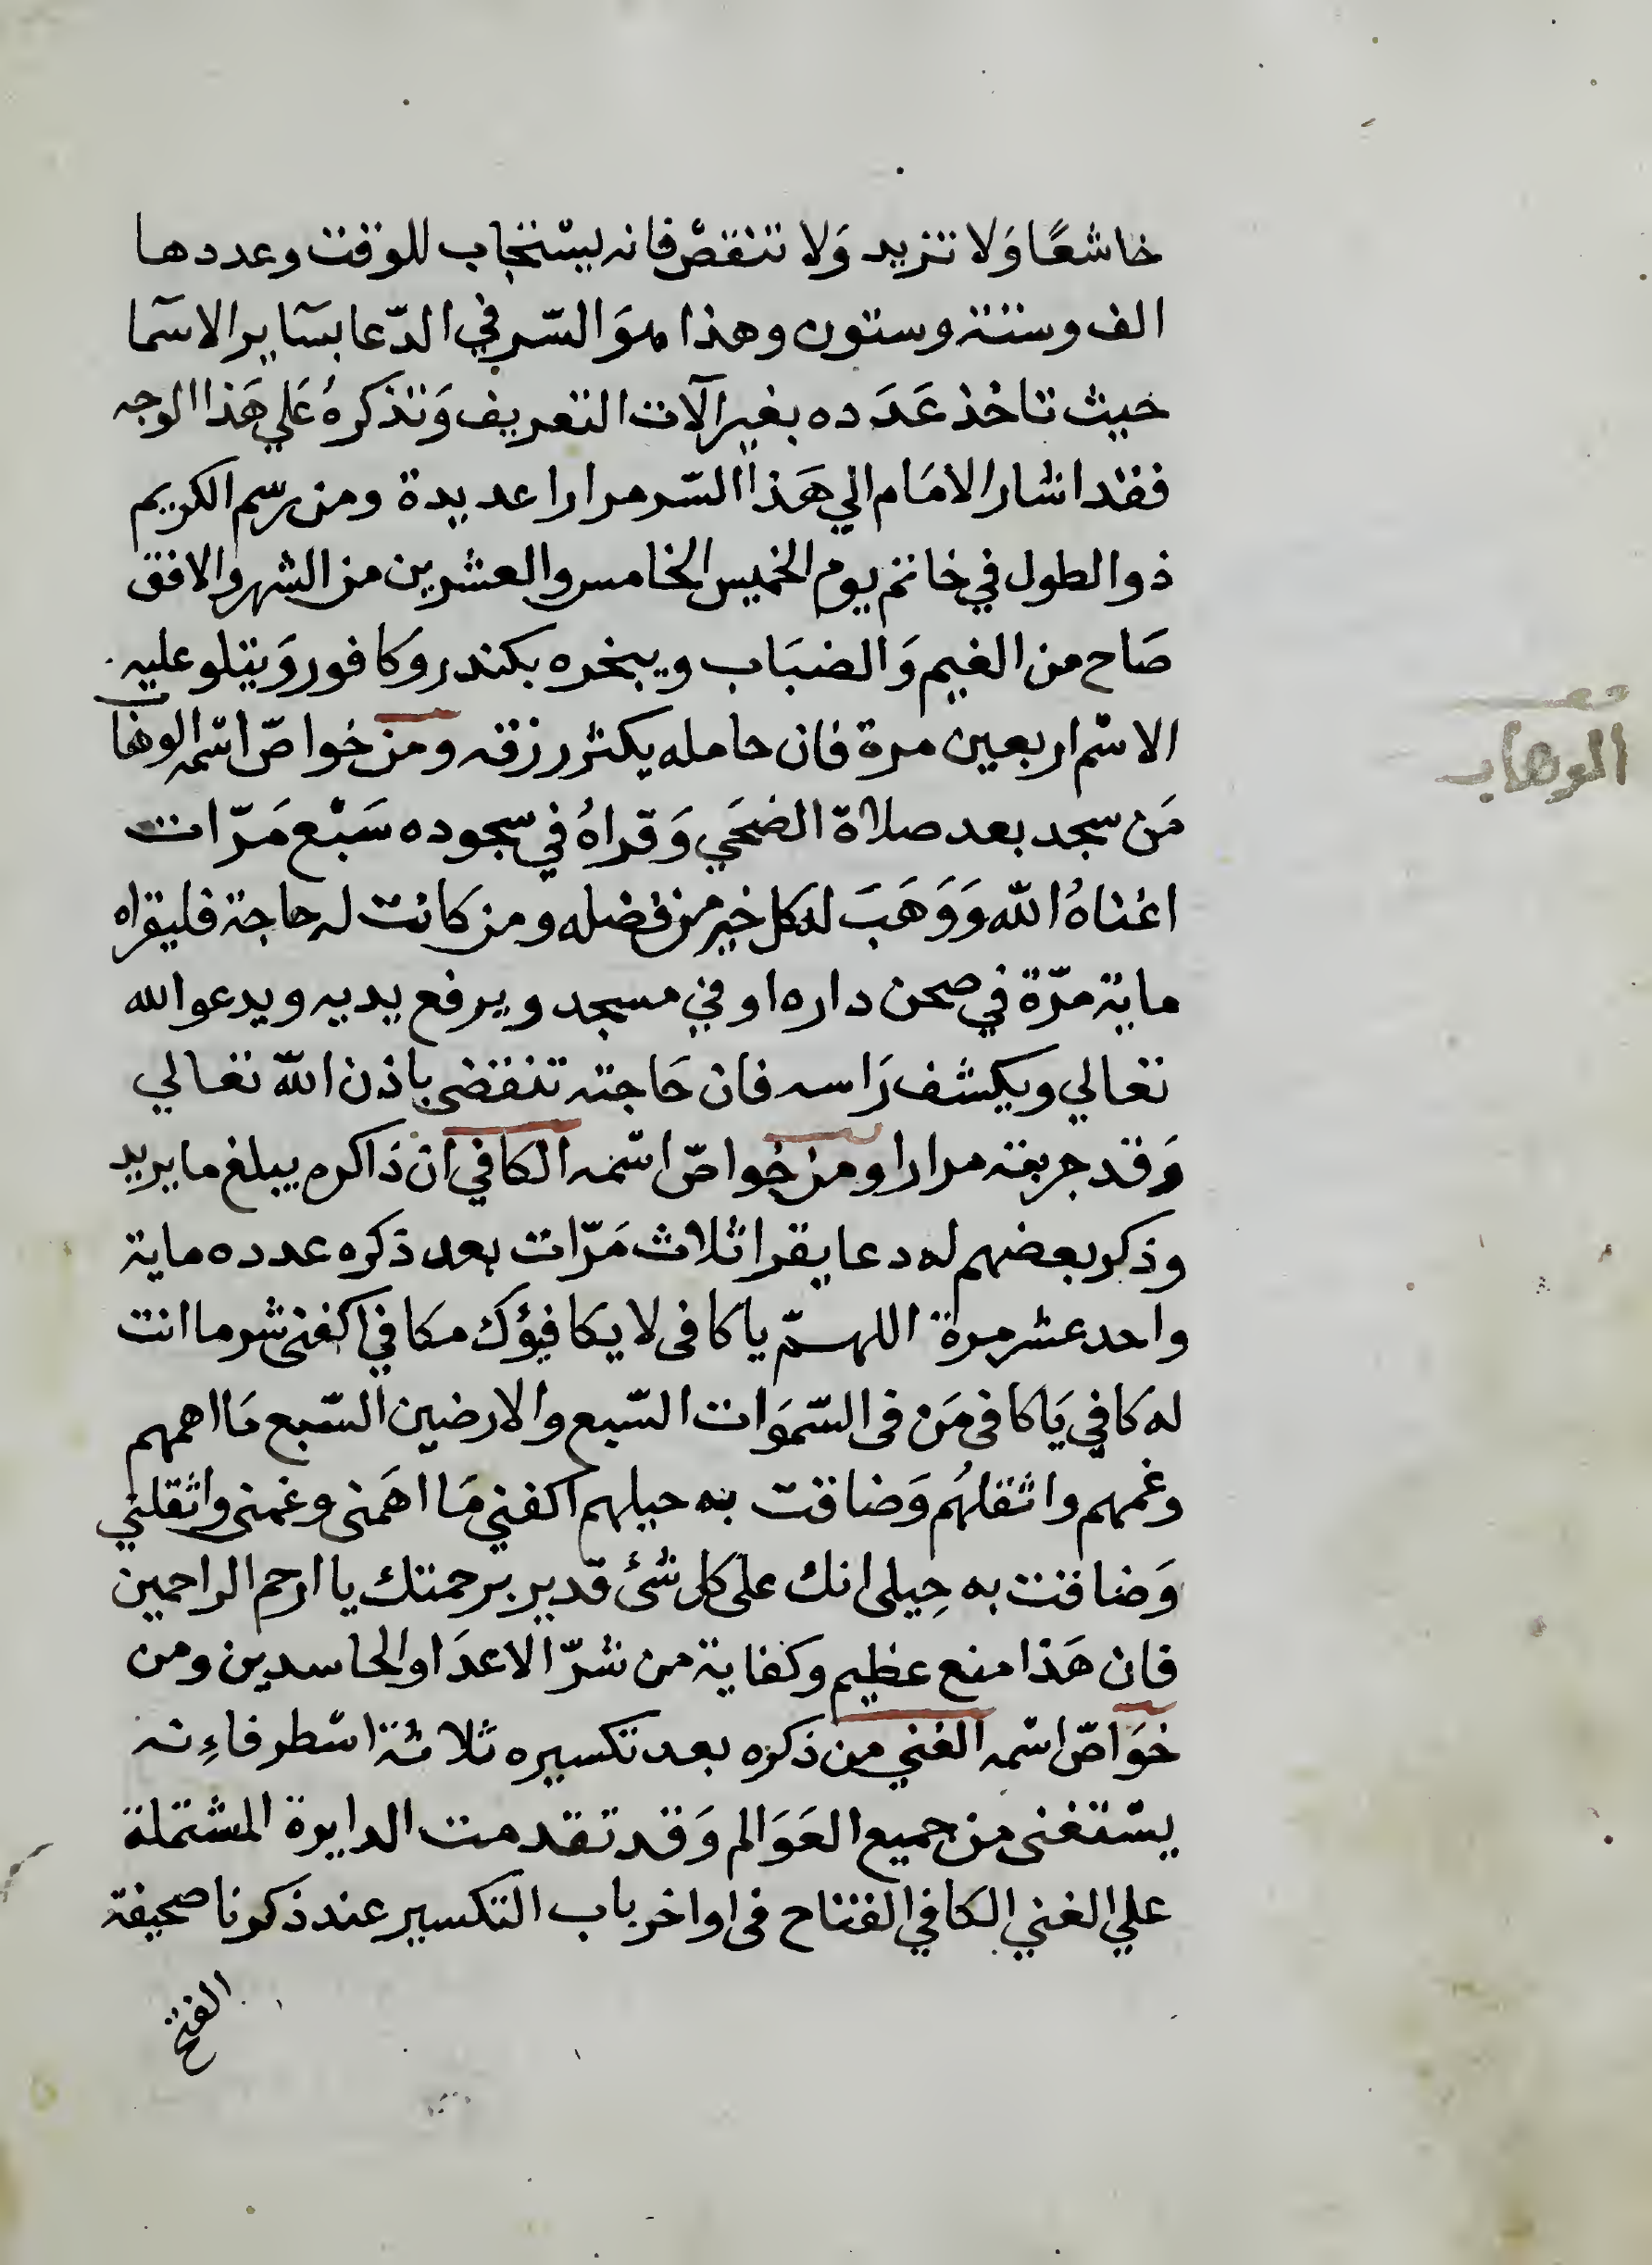 خاشعًا وَلا تزيد وَلا تنقصْ فانه يسْتجاب للوقت وعددها
الف وستة وستون وهذا هوَ السّر في الدّعا بسَاير الاسمَا
حيث تاخذ عَدَده بغير آلات التعريف وَتذكرهُ عَلي هَذا الوجه
فقد اشار الامَام الي هَذا السّر مرارا عديدة ومن رسم الكريم
ذو الطول في خاتم يوم الخميس الخامس والعشرين من الشهر والافق
صَاح من الغيم وَالضبَاب ويبخره بكندر وكافور وَيتلو عليه
الاسْم اربعين مرة فان حامله يكثر رزقه ومن خواصّ اسْمه الوهاب
مَن سجد بعد صلاة الضحَي وَقراهُ في سجوده سَبْع مَرّات
اغناهُ الله وَوَهَبَ له كل خير من فضله ومن كانت له حاجة فليقراه
ماية مرّة في صحن داره او في مسجد ويرفع يديه ويدعو الله
تعالي ويكشف رَاسه فان حَاجته تنقضي باذن الله تعالي
وَقد جربته مرارا ومن خواصّ اسْمه الكافي ان ذَاكره يبلغ ما يريد
وذكر بعضهم له دعا يقرا ثلاث مَرّات بعد ذكره عدده ماية
واحد عشر مرة اللهمّ يا كافى لا يكافيؤك مكافي اكفنى شر ما انت
له كافي يَا كافى مَن فى السّموَات السّبع والارضين السّبع مَا اهمهم
وغمهم واثقلهُم وَضاقت به حيلهم اكفني مَا اهَمنى وغمنى واثقلني
وَضاقت به حِيلى انك على كل شئ قدير برحمتك يا ارحم الراحمين
فان هَذا منع عظيم وكفاية من شرّ الاعدَا والحاسدين ومن
خوَاصّ اسْمه الغني من ذكره بعد تكسيره ثلاثة اسْطر فاءِنه
يسْتغنى من جميع العَوَالم وَقد تقدمت الدايرة المشتملة
علي الغني الكافي الفتاح فى اواخر باب التكسير عند ذكرنا صحيفة
الفتح
الوهاب